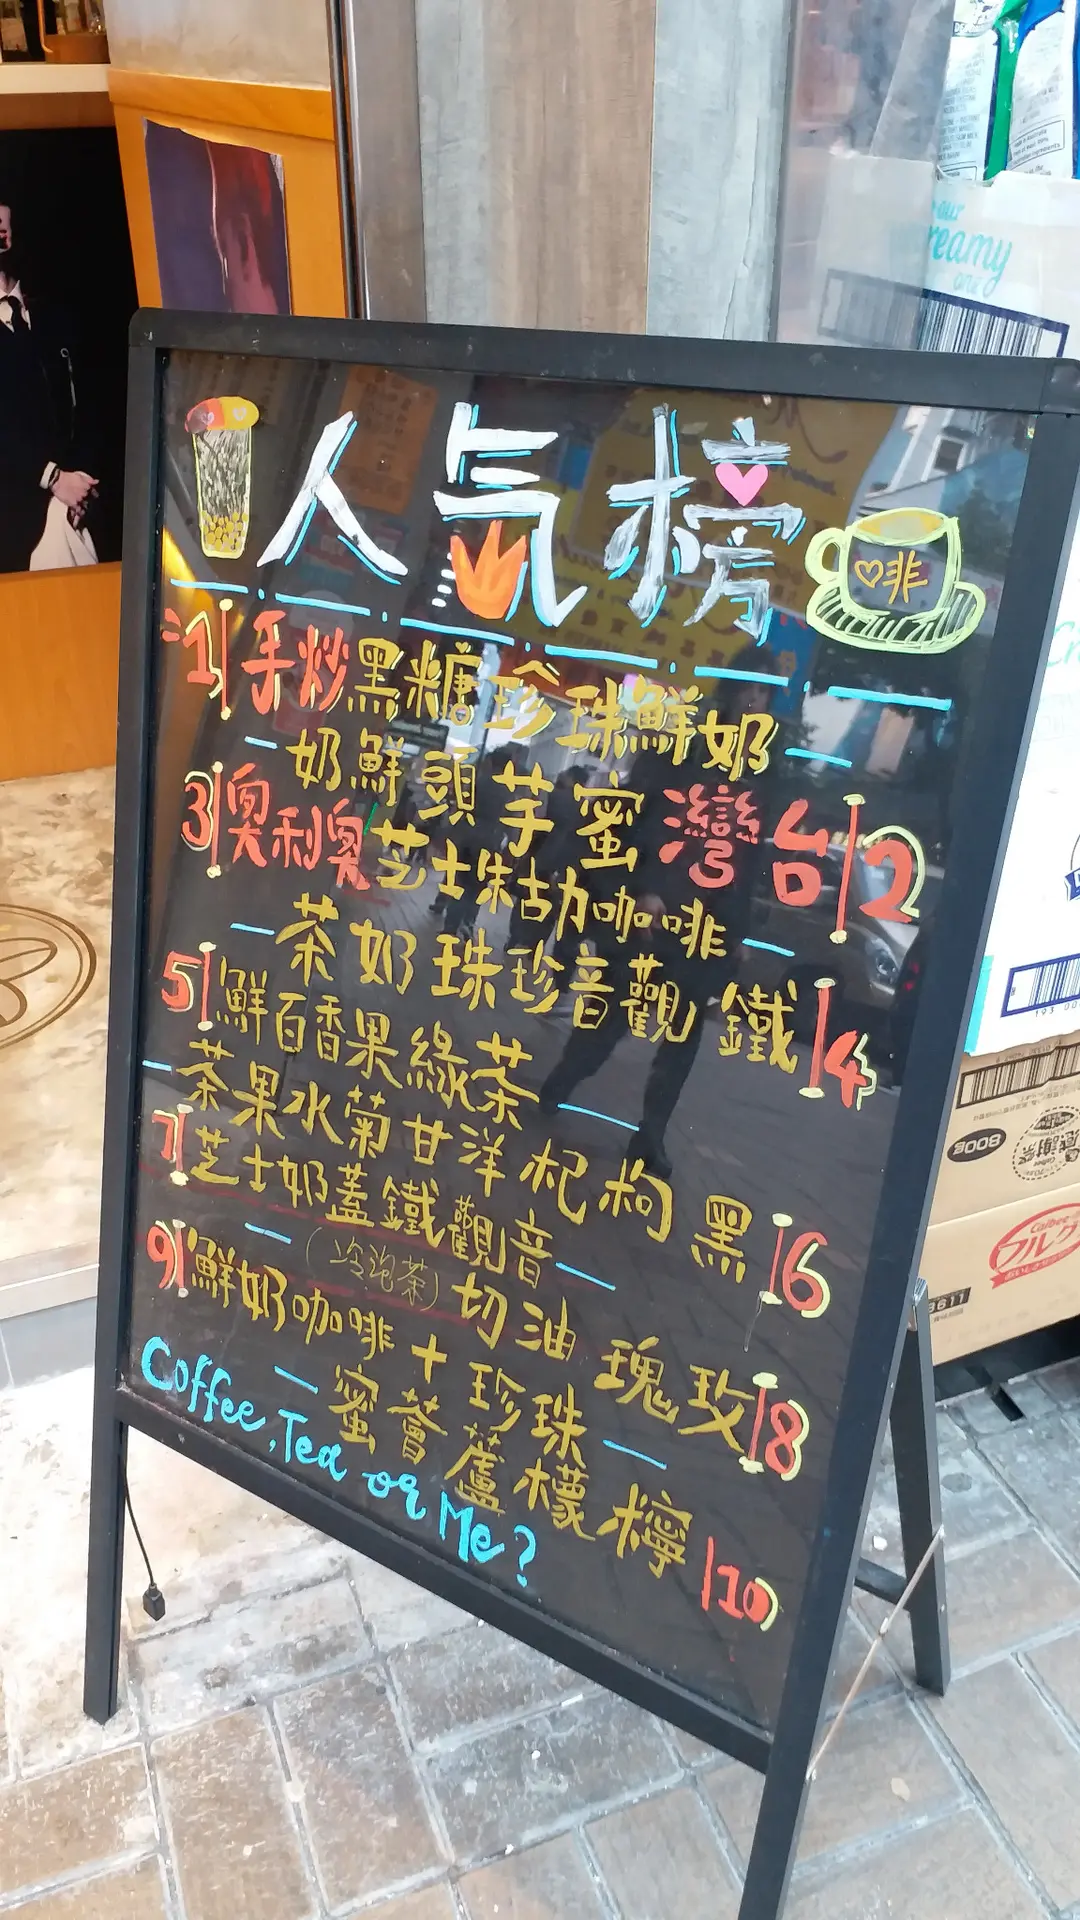 人氣榜
♡啡
1|手炒黑糖珍珠鮮奶
2|台灣蜜芋頭鮮奶
3|奧利奧芝士朱古力咖啡
4|鐵觀音珍珠奶茶
5|鮮百香果綠茶
6|黑枸杞洋甘菊水果茶
7|芝士奶蓋鐵觀音
8|玫瑰油切(冷泡茶)
9|鮮奶咖啡+珍珠
10|檸檬蘆薈蜜
Coffee, Tea or Me?
our
creamy
one
800g
感謝祭
Calbee
フルグ
3611